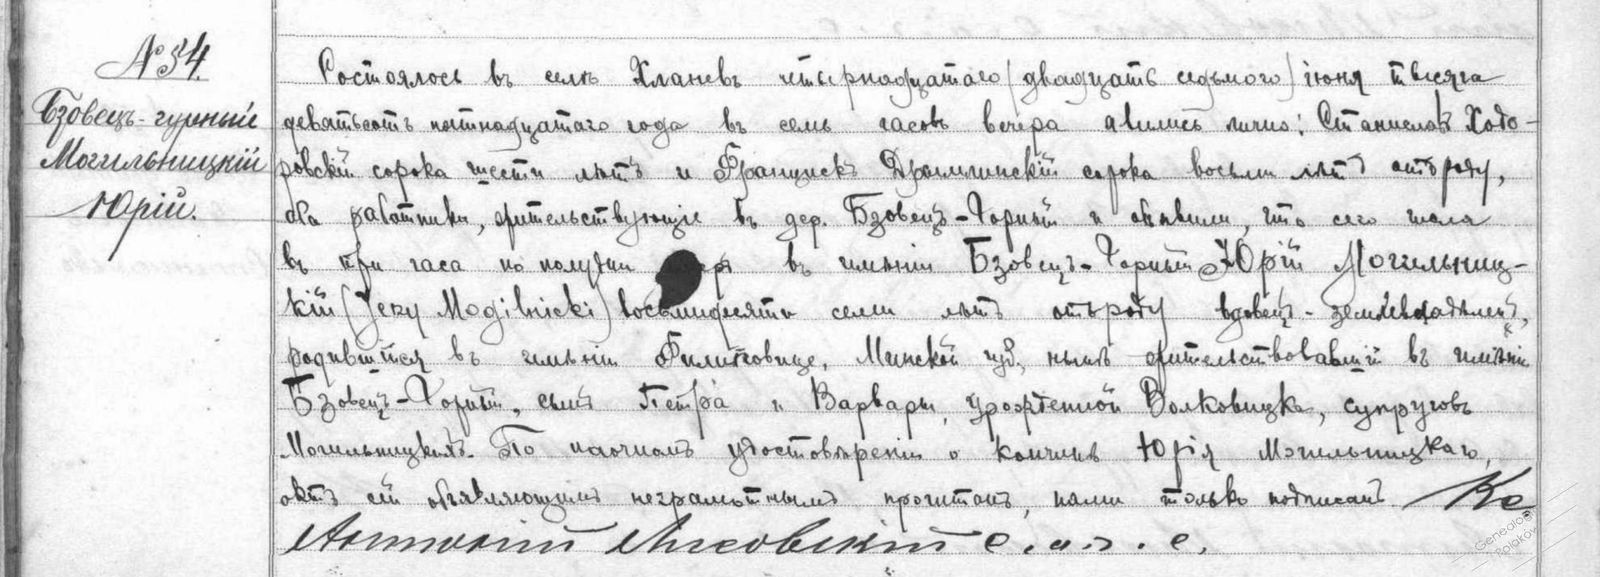 № 54.
Бзовецъ-гурный
Могильницкій
Юрій.
Состоялось въ селѣ Хланевѣ четырнадцатаго (двадцать седьмого) іюня тысяча
девятьсотъ пятнадцатаго года въ семь часовъ вечера явились лично: Станиславъ Ходо-
ровскій сорока шести лѣтъ и Францискъ сорока восьми лѣтъ отъ роду,
оба работники, жительствующіе въ дер. Бзовецъ-Горный и объявили, что сего числа
въ три часа по полудни въ имѣніи Бзовецъ-Горный Юрій Могильниц-
кій (Jerzy Mogilnicki) восьмидесяти семи лѣтъ отъ роду вдовецъ - землевладѣлецъ,
родившійся въ имѣніи Филиповице, Минской губ., нынѣ жительствовавшій въ имѣніи
Бзовецъ-Горный, сынъ Петра и Варвары, урожденной Волковицка, супруговъ
Могильницкихъ. По наочномъ удостовѣреніи о кончинѣ Юрія Могильницкаго,
актъ сей объявляющимъ неграмотнымъ прочитанъ, нами только подписанъ. Кс.
Антоній Лисовскій с. а. г. с.
Genealodzy
Polakow